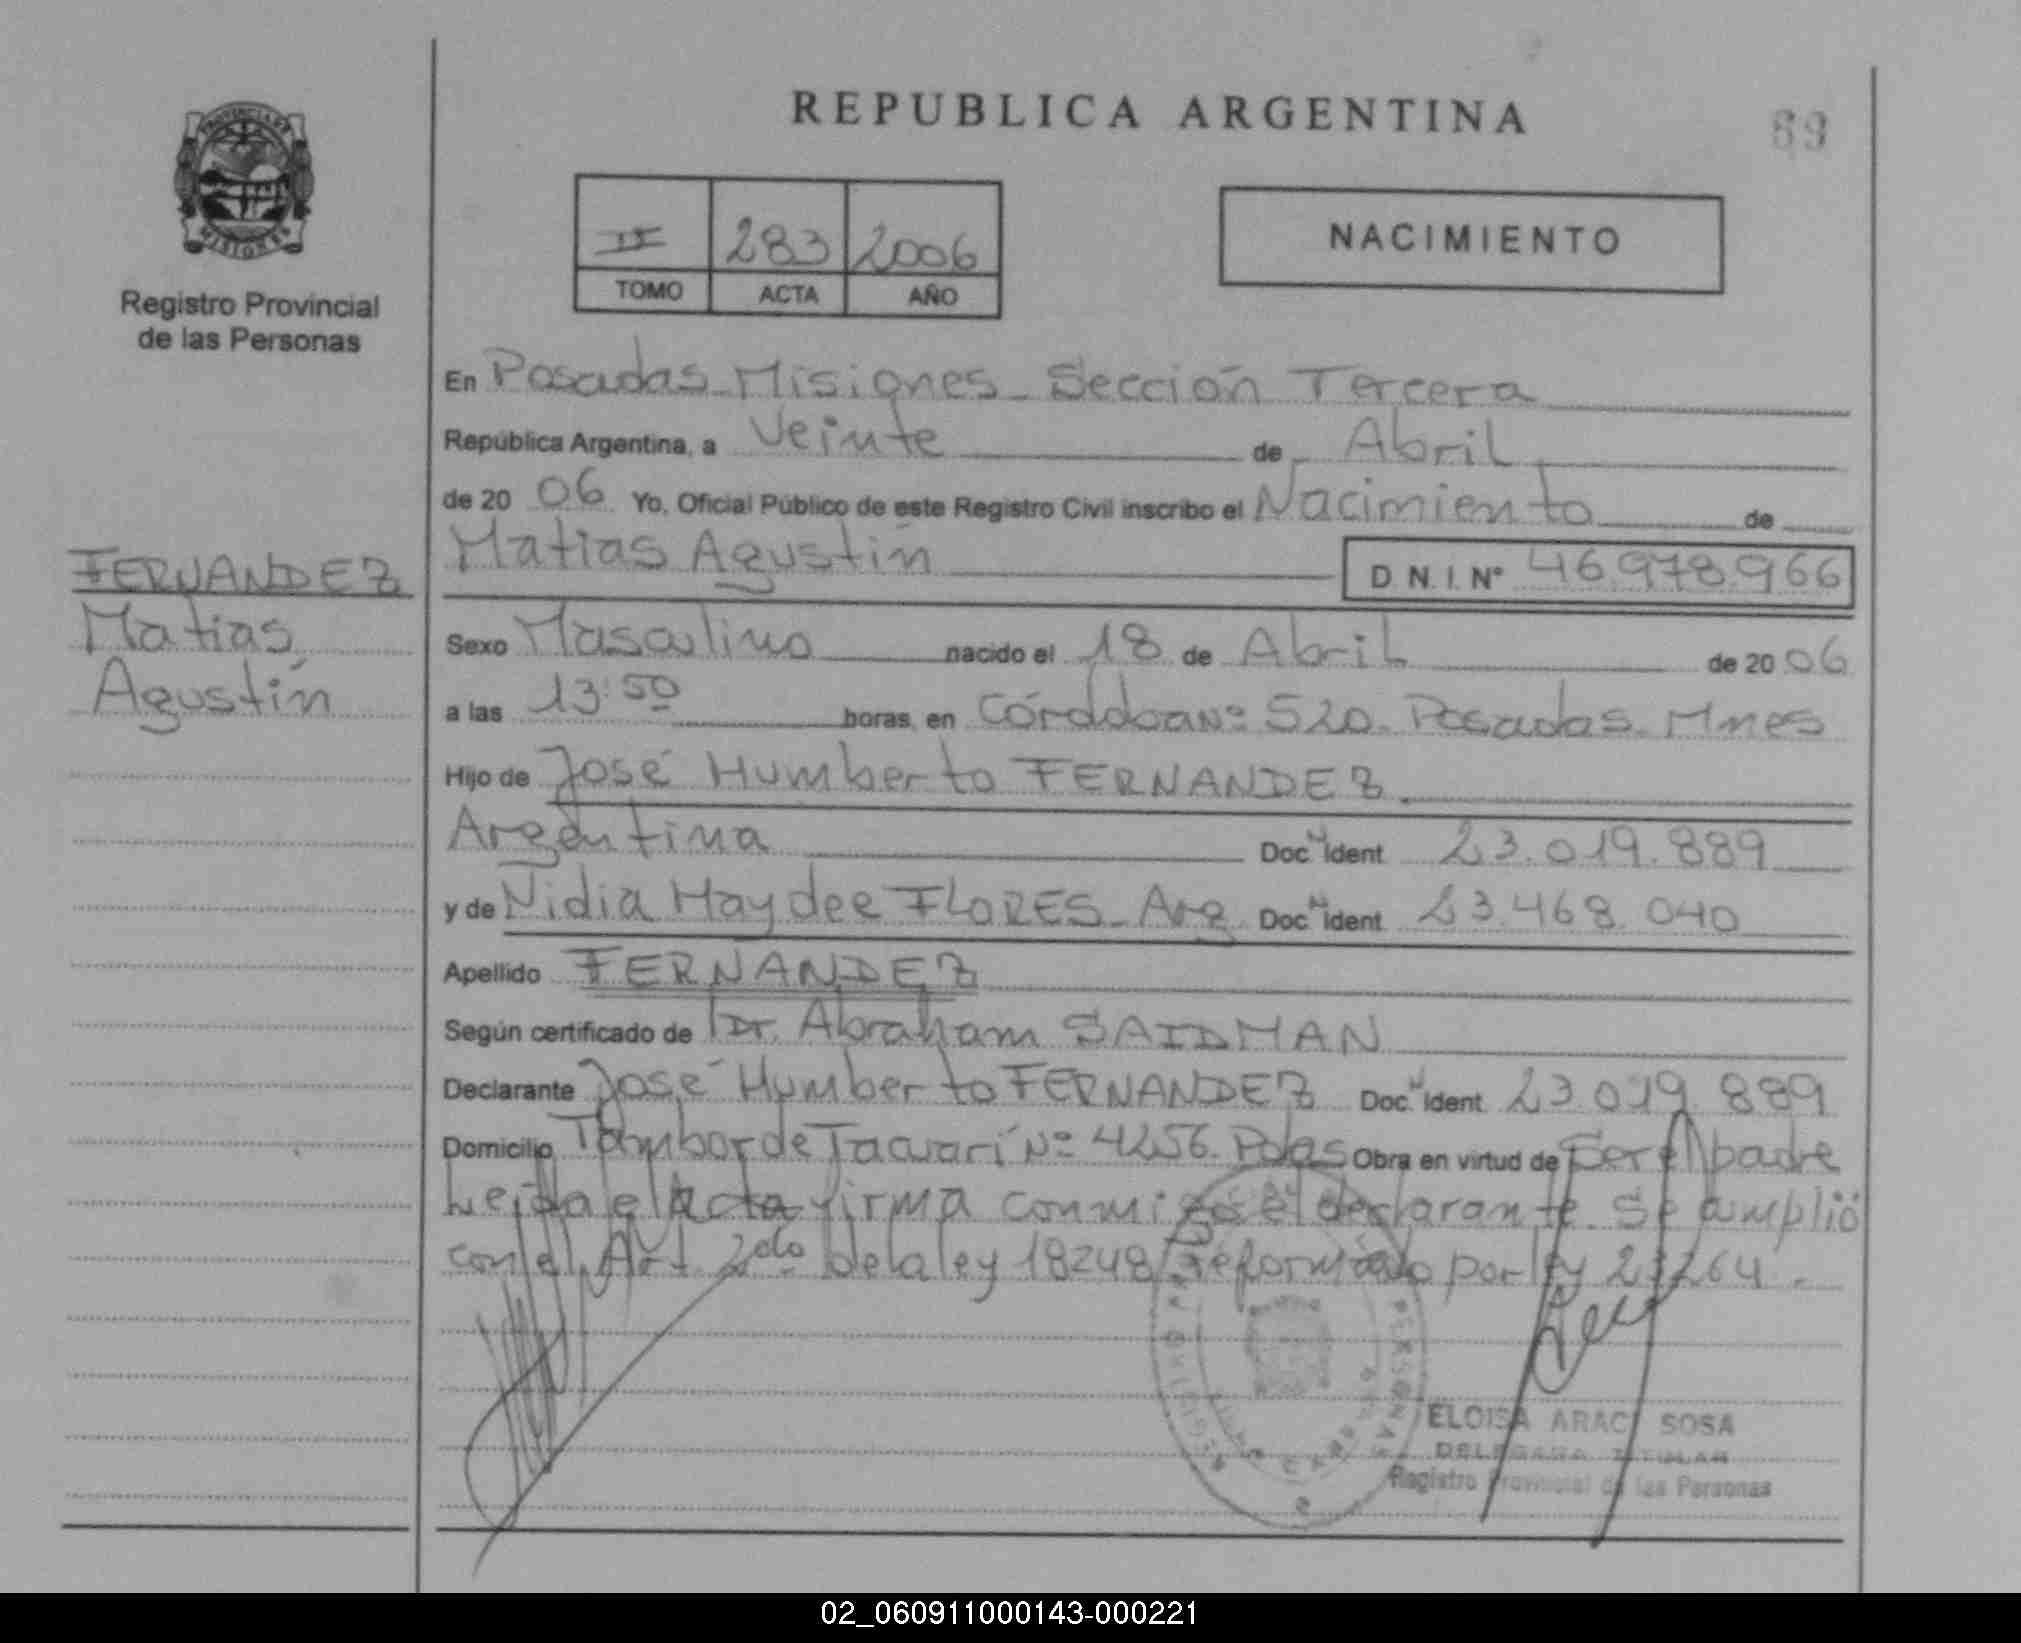 REPUBLICA ARGENTINA
69
PROVINCIA DE
MISIONES
Registro Provincial
de las Personas
II 283 2006
TOMO ACTA AÑO
NACIMIENTO
FERNANDEZ
Matias
Agustín
En Posadas - Misiones - Sección Tercera
República Argentina, a Veinte de Abril
de 2006 Yo, Oficial Público de este Registro Civil inscribo el Nacimiento de
Matias Agustín D.N.I. Nº 46.978.966
Sexo Masculino nacido el 18 de Abril de 2006
a las 13:50 horas, en Córdoba Nº 520. Posadas. Mnes
Hijo de José Humberto FERNANDEZ.
Argentina Doc. N Ident 23.019.889
y de Nidia Haydee FLORES - Arg. Doc. N Ident 23.468.040
Apellido FERNANDEZ
Según certificado de Dr. Abraham SAIDMAN
Declarante José Humberto FERNANDEZ Doc. N Ident. 23.019.889
Domicilio Tambor de Tacuarí Nº 4256. Pdas Obra en virtud de Ser el padre
Leida el Acta firma conmigo el declarante. Se amplió
con el Art 2do de la ley 18248 reformado por ley 23264.
ELOISA ARACI SOSA
DELEGADA TITULAR
Registro Provincial de las Personas
02_060911000143-000221